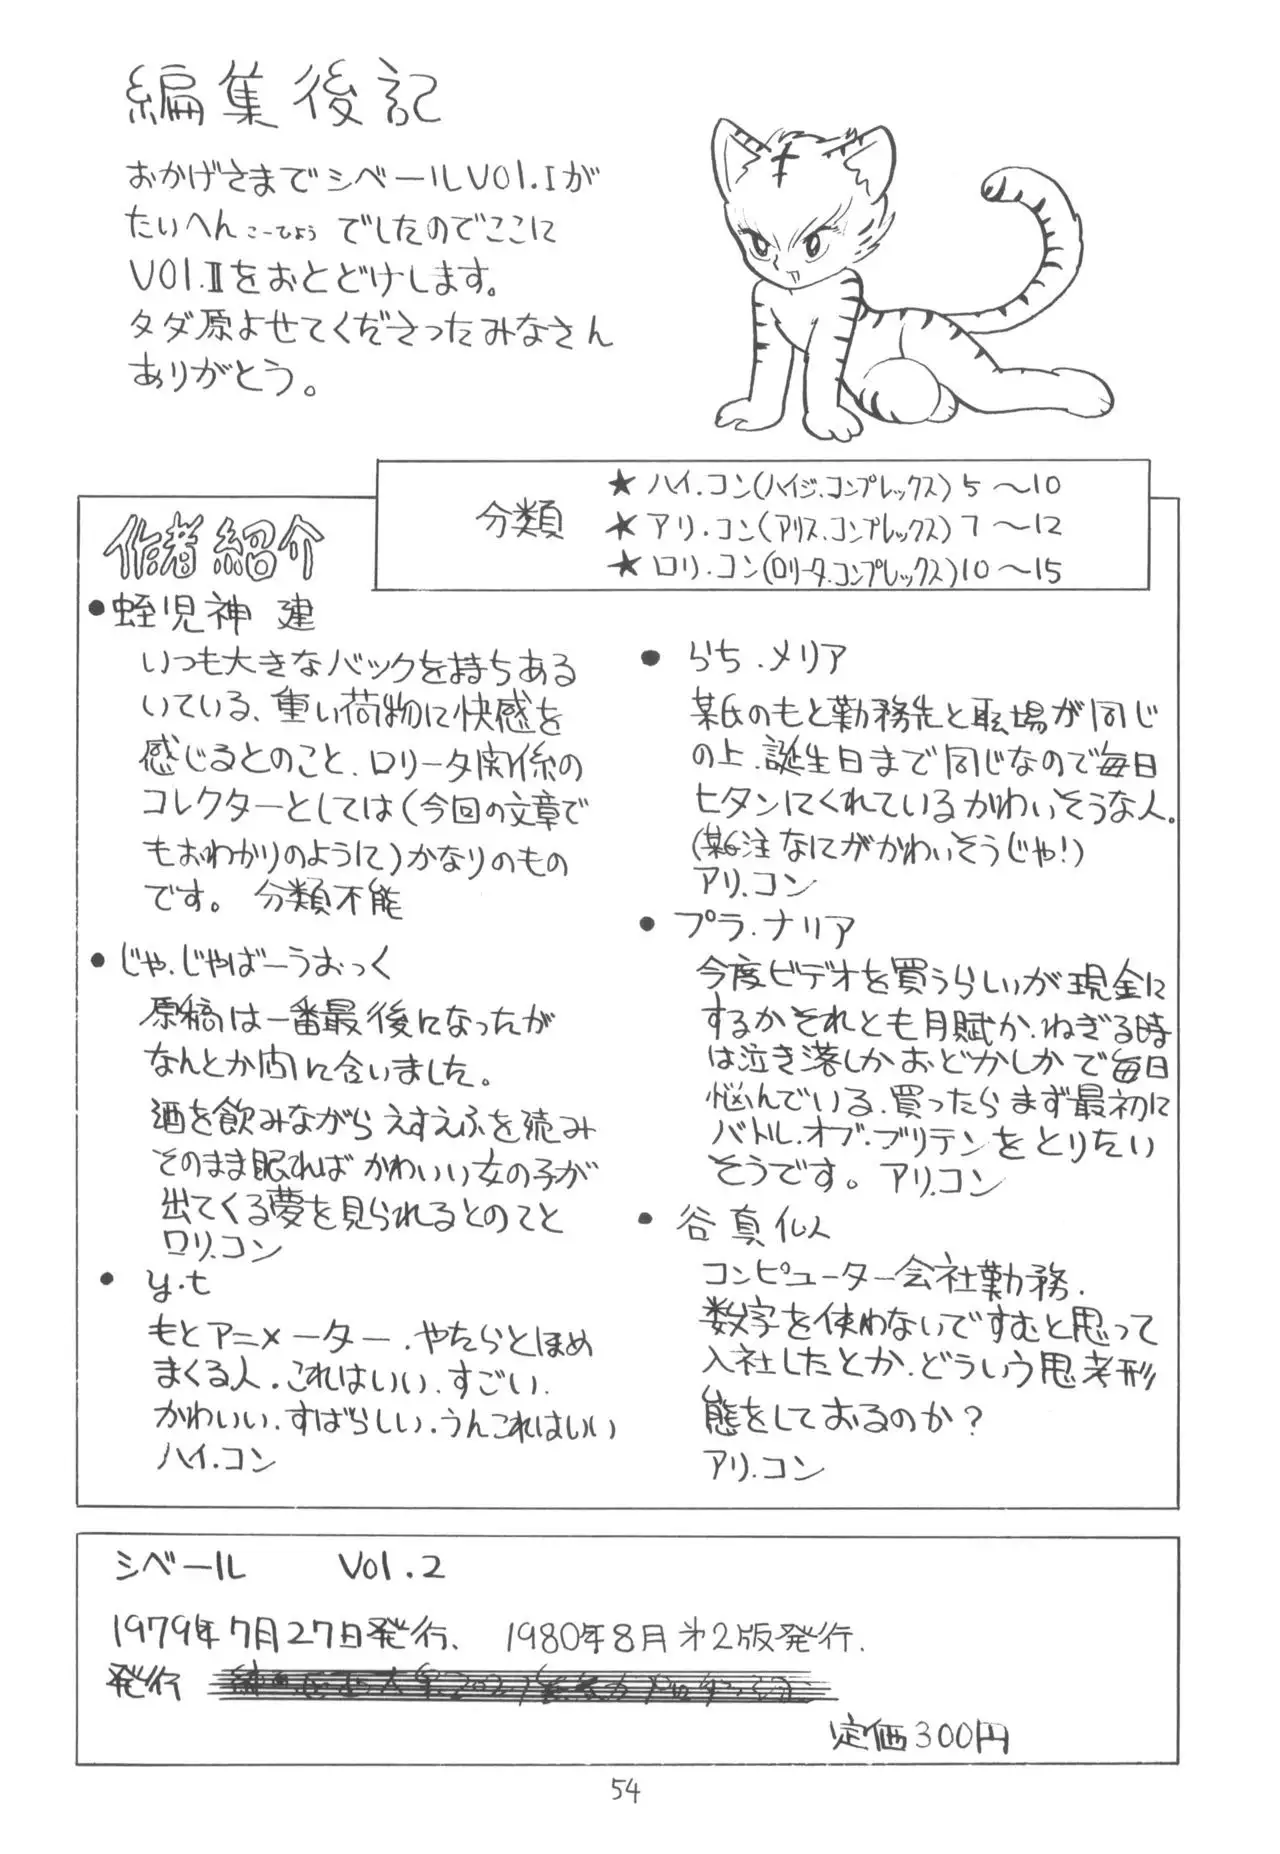 編集後記
おかげさまでシベールVOl.Iが
たいへんこーひょうでしたのでここに
VOl.IIをおとどけします。
タダ原よせてくださったみなさん
ありがとう。
分類
★ハイ.コン(ハイジ.コンプレックス)5〜10
★アリ.コン(アリス.コンプレックス)7〜12
★ロリ.コン(ロリータ.コンプレックス)10〜15
作者紹介
●蛭児神 建
いつも大きなバックを持ちある
いている、重い荷物に快感を
感じるとのこと、ロリータ関係の
コレクターとしては(今回の文章で
もおわかりのように)かなりのもの
です。 分類不能
●じゃ.じゃばーうおっく
原稿は一番最後になったが
なんとか間に合いました。
酒を飲みながらえすえふを読み
そのまま眠ればかわいい女の子が
出てくる夢を見られるとのこと
ロリ.コン
●y.t
もとアニメーター.やたらとほめ
まくる人.これはいい.すごい.
かわいい.すばらしい.うんこれはいい
ハイ.コン
●らち.メリア
某氏のもと勤務先と職場が同じ
の上.誕生日まで同じなので毎日
ヒタンにくれているかわいそうな人。
(某氏注 なにがかわいそうじゃ!)
アリ.コン
●プラ.ナリア
今度ビデオを買うらしいが現金に
するかそれとも月賦か.ねぎる時
は泣き落しかおどかしかで毎日
悩んでいる.買ったらまず最初に
バトル.オブ.ブリテンをとりたい
そうです。 アリ.コン
●谷 真似人
コンピューター会社勤務.
数字を使わないですむと思って
入社したとか.どういう思考形
態をしておるのか?
アリ.コン
シベール Vol.2
1979年7月27日発行、 1980年8月オ2版発行.
発行
定価300円
54